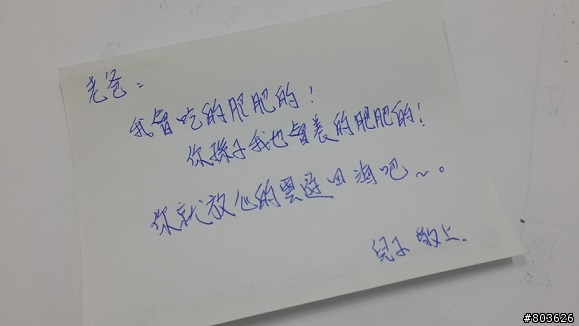 老爸：
我會吃的肥肥的！
你孫子我也會養的肥肥的！
你就放心的雲遊四海吧～。
兒子 敬上.
#803626